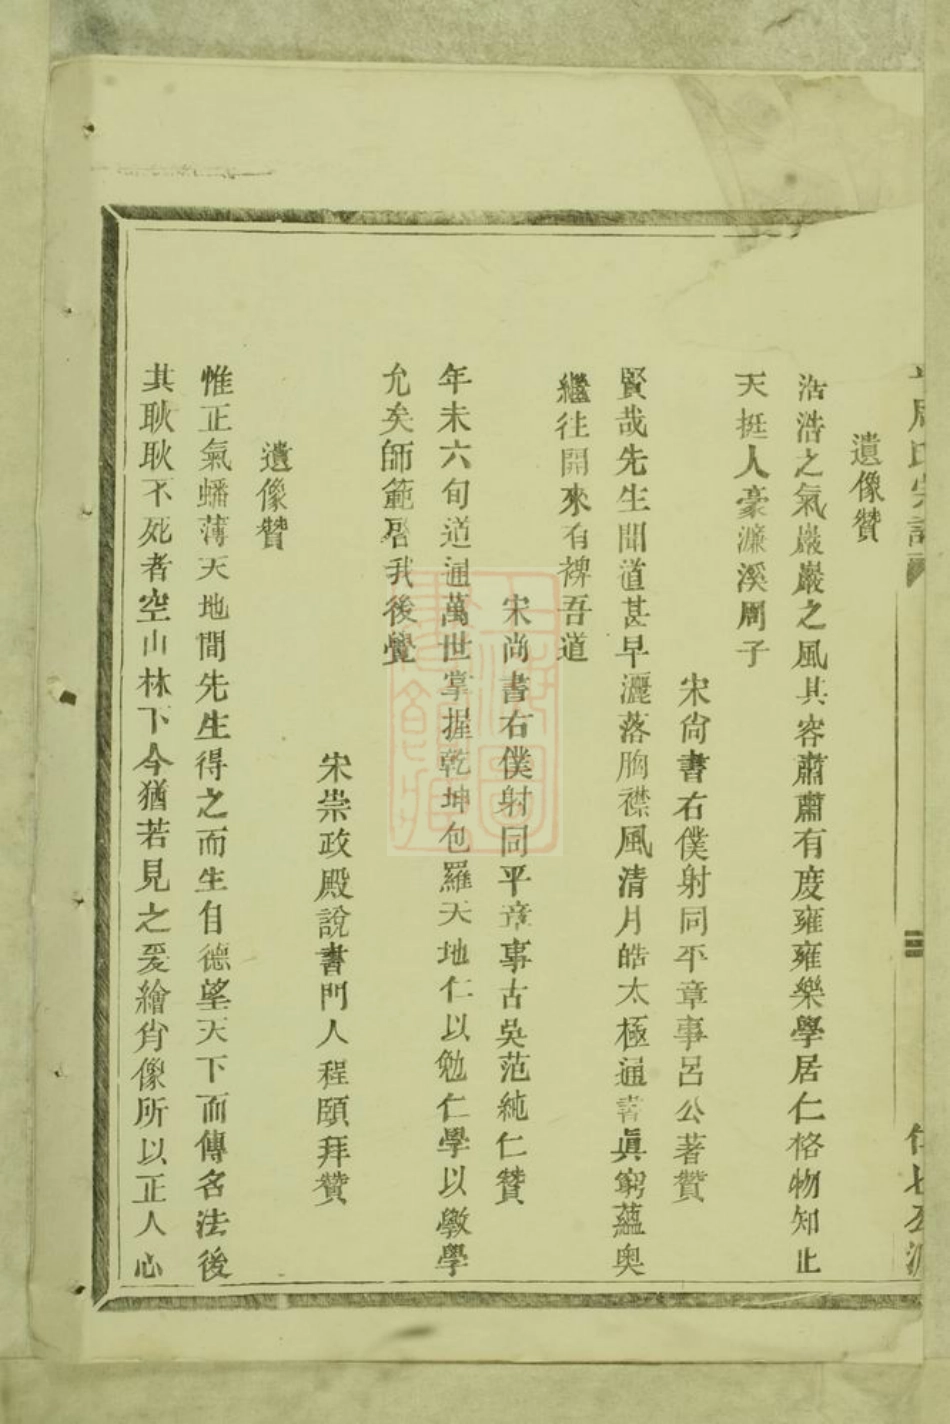 周氏宗譜
遺像贊
浩浩之氣巖巖之風其容肅肅有度雍雍樂學居仁格物知止
天挺人豪濂溪周子
宋尙書右僕射同平章事呂公著贊
賢哉先生聞道甚早灑落胸襟風清月皓太極通書眞窮蘊奥
繼往開來有裨吾道
宋尙書右僕射同平章事古吳范純仁贊
年未六旬道通萬世掌握乾坤包羅天地仁以勉仁學以斆學
允矣師範啓我後覺
宋崇政殿說書門人程頤拜贊
遺像贊
惟正氣蟠薄天地間先生得之而生自德望天下而傳名法後
其耿耿不死者空山林下今猶若見之爰繪肖像所以正人心